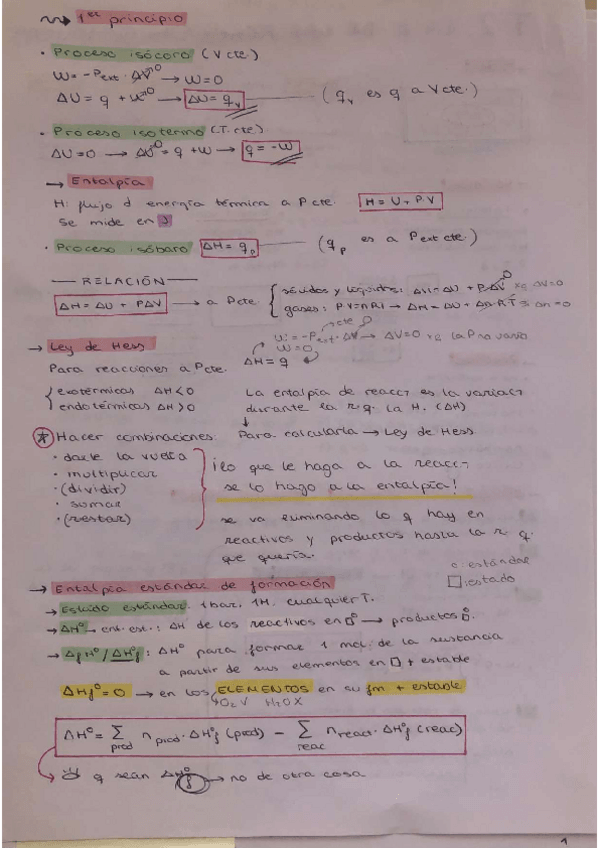 1er principio
· Proceso isócoro (V cte.)
W = -Pext · ΔV⁰ → W=0
ΔU = q + W⁰ → ΔU = qv — (qv es q a V cte.)
· Proceso isotermo (T. cte.)
ΔU=0 → ΔU⁰ = q + W → q = -W
→ Entalpía
H: flujo d energía térmica a P cte. H = U + P·V
Se mide en J
· Proceso isóbaro ΔH = qp — (qp es a P ext cte.)
— RELACIÓN —
ΔH = ΔU + PΔV → a P cte. { sólidos y líquidos: ΔH = ΔU + PΔV⁰ xq ΔV=0
gases: PV=nRT → ΔH = ΔU + Δn·R·T si Δn=0
cte 0
W = -Pext · ΔV → ΔV=0 la P no varía
W=0
→ Ley de Hess
Para reacciones a P cte. ΔH = q
{ exotérmicas ΔH<0
endotérmicas ΔH>0
La entalpía de reacc⁊ es la variac⁊
durante la r.q. la H. (ΔH)
↓
Para calcularla → Ley de Hess.
* Hacer combinaciones:
· darle la vuelta
· multiplicar
· (dividir)
· sumar
· (restar)
¡lo que le haga a la reacc⁊
se lo hago a la entalpía!
se va eliminando lo q hay en
reactivos y productos hasta la r. q.
que quería.
o: estándar
□: estado
→ Entalpía estándar de formación
→ Estado estándar: 1 bar, 1M, cualquier T.
→ ΔH⁰ → ent. est.: ΔH de los reactivos en □⁰ → productos □⁰.
→ ΔfH⁰/ΔH⁰f: ΔH⁰ para formar 1 mol de la sustancia
a partir de sus elementos en □ + estable
ΔHf⁰=0 → en los ELEMENTOS en su fm + estable
→ O₂ V H₂O X
ΔH⁰ = Σ prod nprod · ΔH⁰f (prod) - Σ reac nreact · ΔH⁰f (reac)
q sean ΔH⁰f → no de otra cosa
1